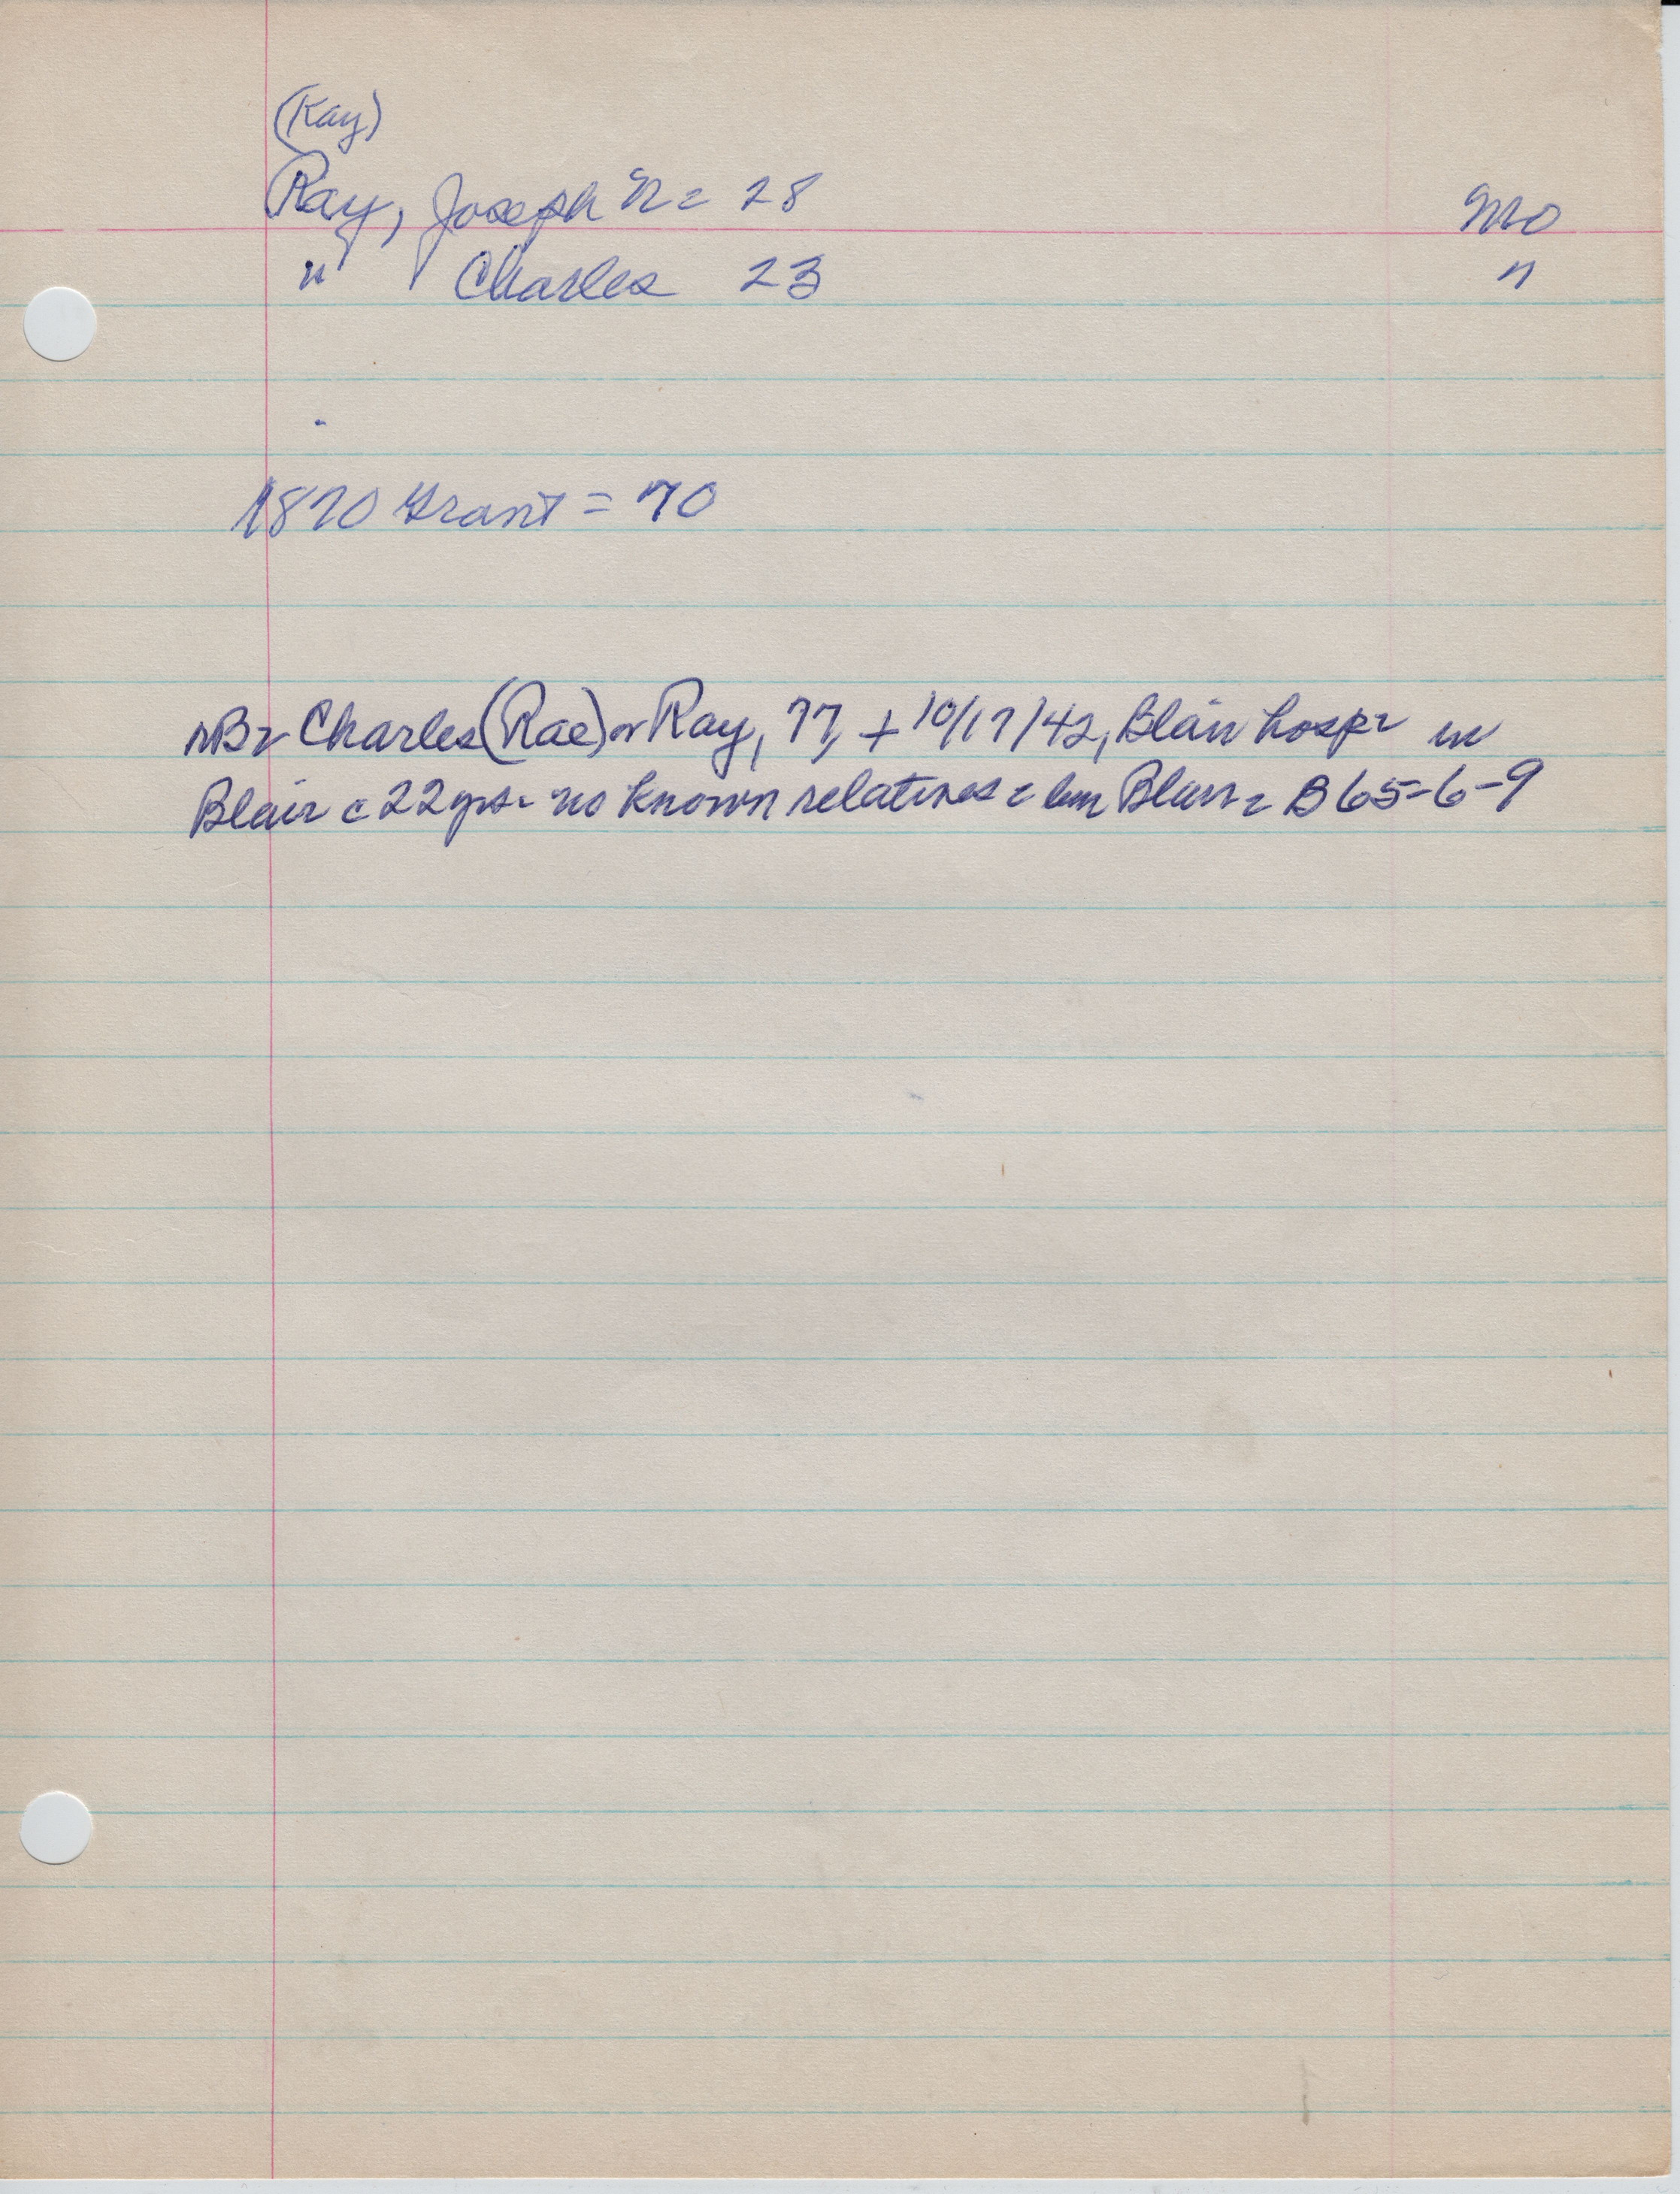 (Kay)
Ray, Joseph N = 28 Mo
" Charles 23 "
1870 Grant = 70
NB = Charles (Rae) or Ray, 77, + 10/17/42, Blair hosp = in
Blair c 22 yrs = no known relatives = bur Blair = B 65-6-9